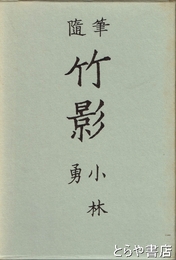 随筆
竹影
小林勇
とらや書店